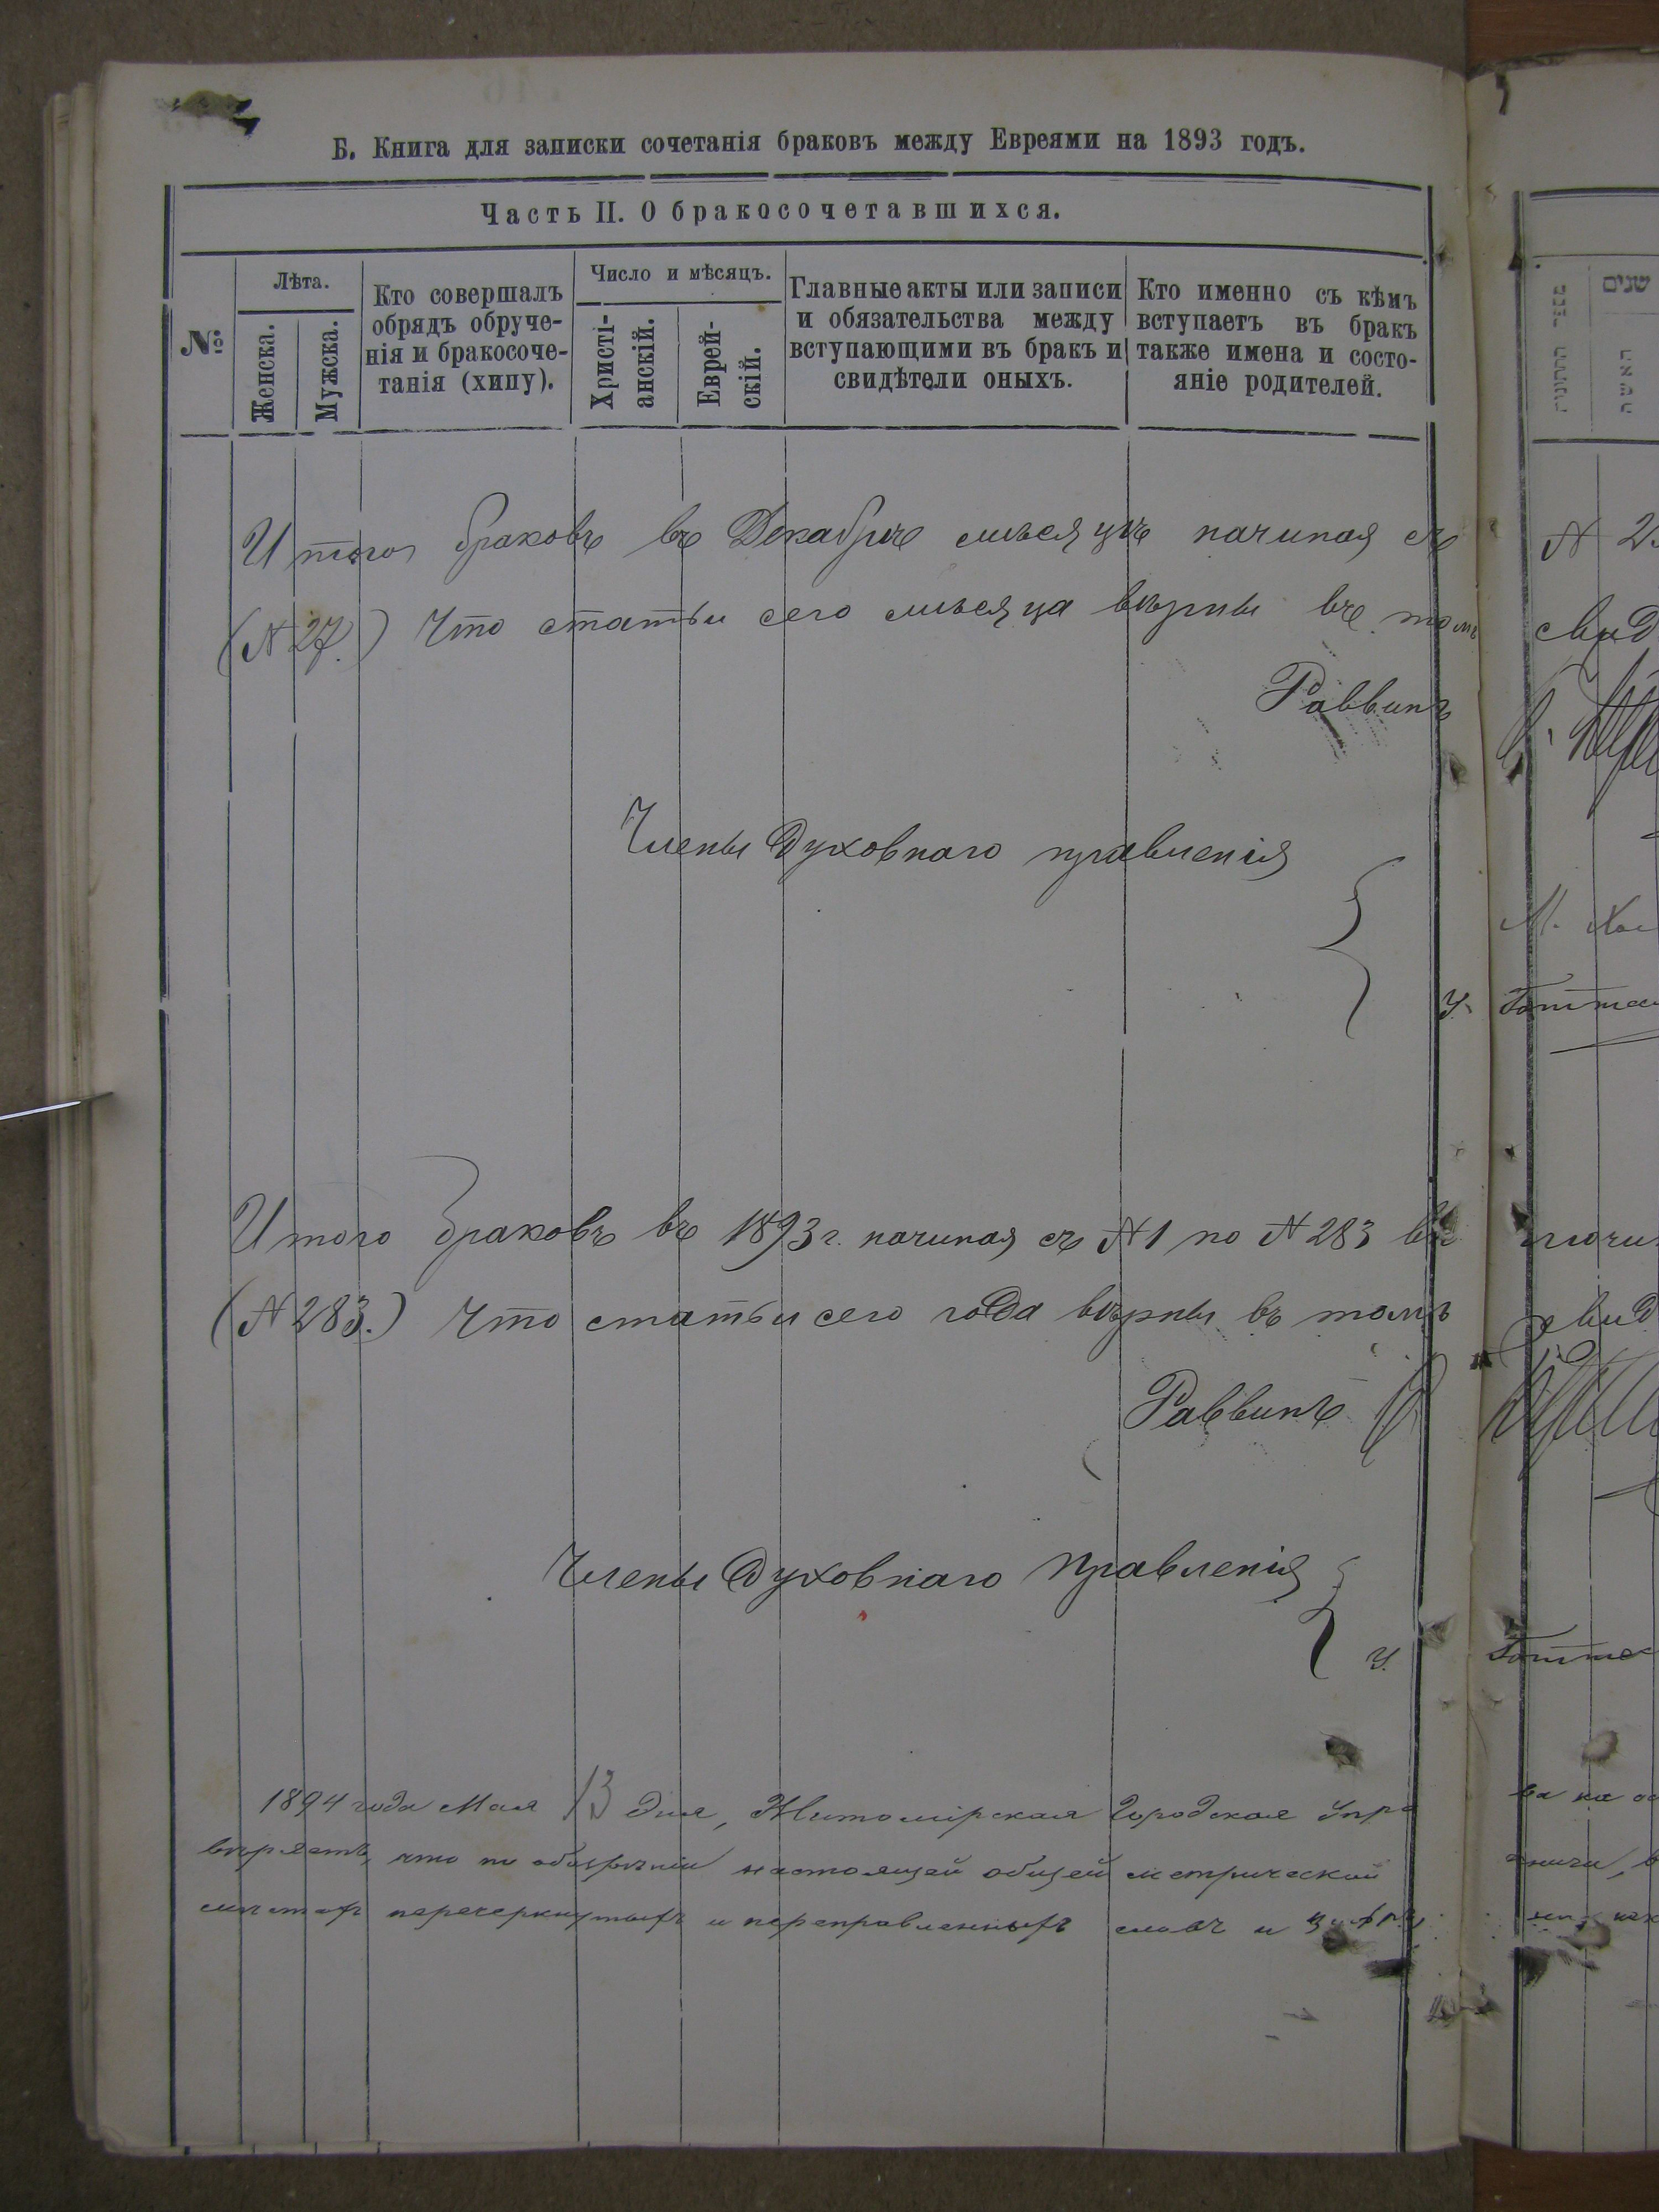 Б. Книга для записки сочетанія браковъ между Евреями на 1893 годъ.
Часть II. О бракосочетавшихся.
№
Лѣта.
Женска.
Мужска.
Кто совершалъ
обрядъ обруче-
нія и бракосоче-
танія (хипу).
Число и мѣсяцъ.
Христі-
анскій.
Еврей-
скій.
Главные акты или записи
и обязательства между
вступающими въ бракъ и
свидѣтели оныхъ.
Кто именно съ кѣмъ
вступаетъ въ бракъ
также имена и состо-
яніе родителей.
שנים
Итого браковъ въ Декабрѣ мѣсяцѣ начиная съ № 2
(№ 27.) Что статьи сего мѣсяца вѣрны въ томъ свид
Раввинъ
Члены Духовнаго правленія
М.
У.
Итого браковъ въ 1893 г. начиная съ № 1 по № 283 вк лючи
(№ 283.) Что статьи сего года вѣрны въ томъ свид
Раввинъ
Члены Духовнаго Правленія
У.
1894 года Мая 13 дня, Житомірская Городская Упра ва на ос
вѣряетъ, что по обозрѣніи настоящей общей метрической книги, в
мѣстах перечеркнутыхъ и переправленныхъ словъ и цифръ